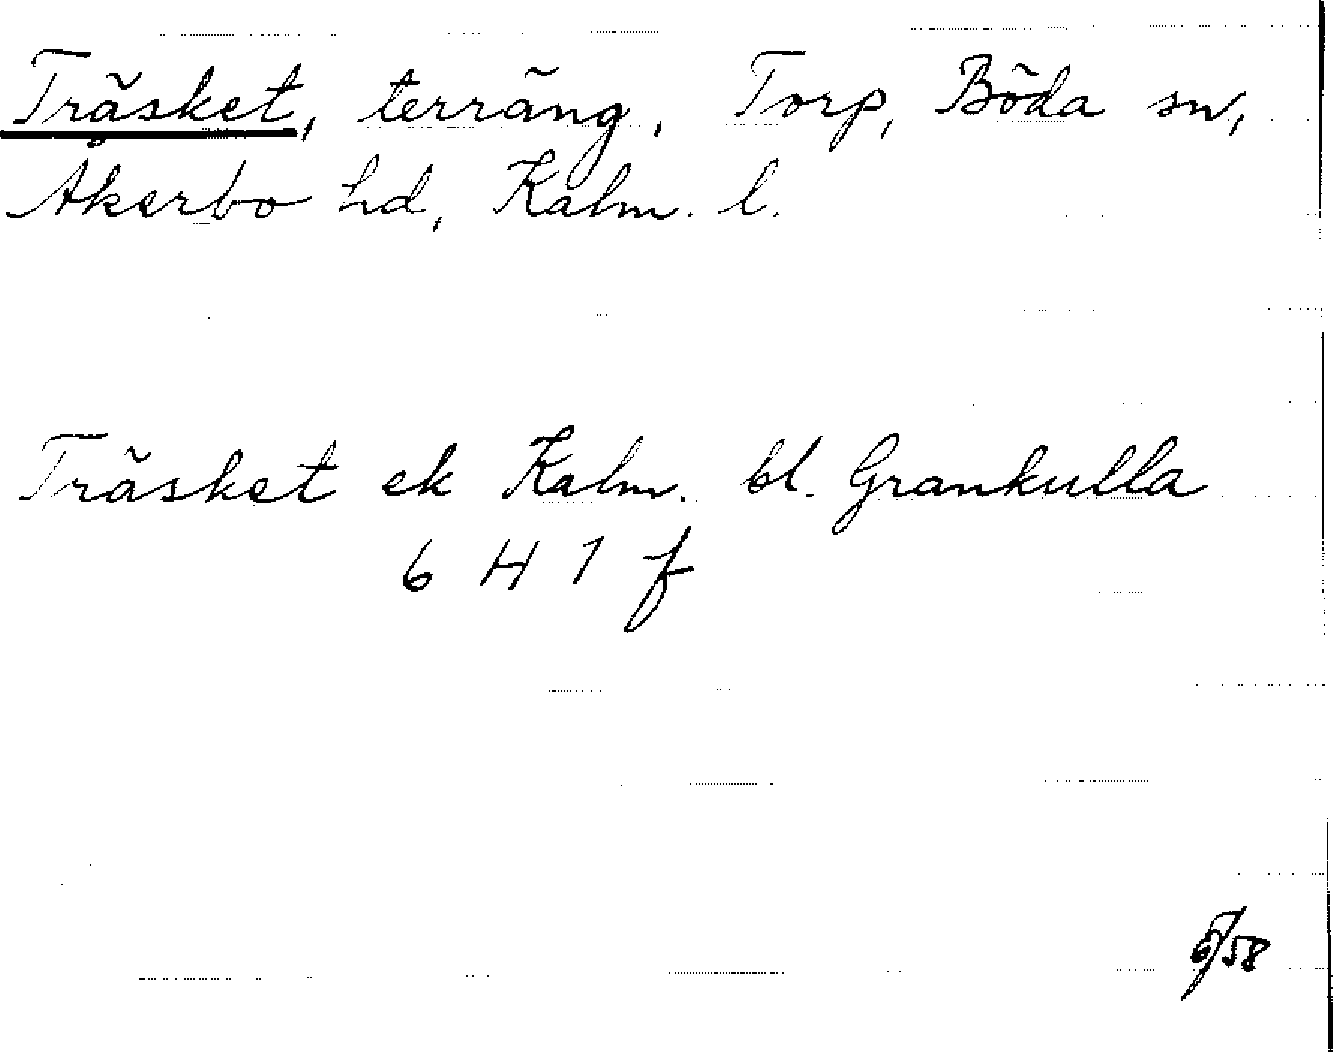 Träsket, terräng, Torp, Böda sn,
Åkerbo hd, Kalm. l.
Träsket ek Kalm. bl. Grankulla
6 H 1 f